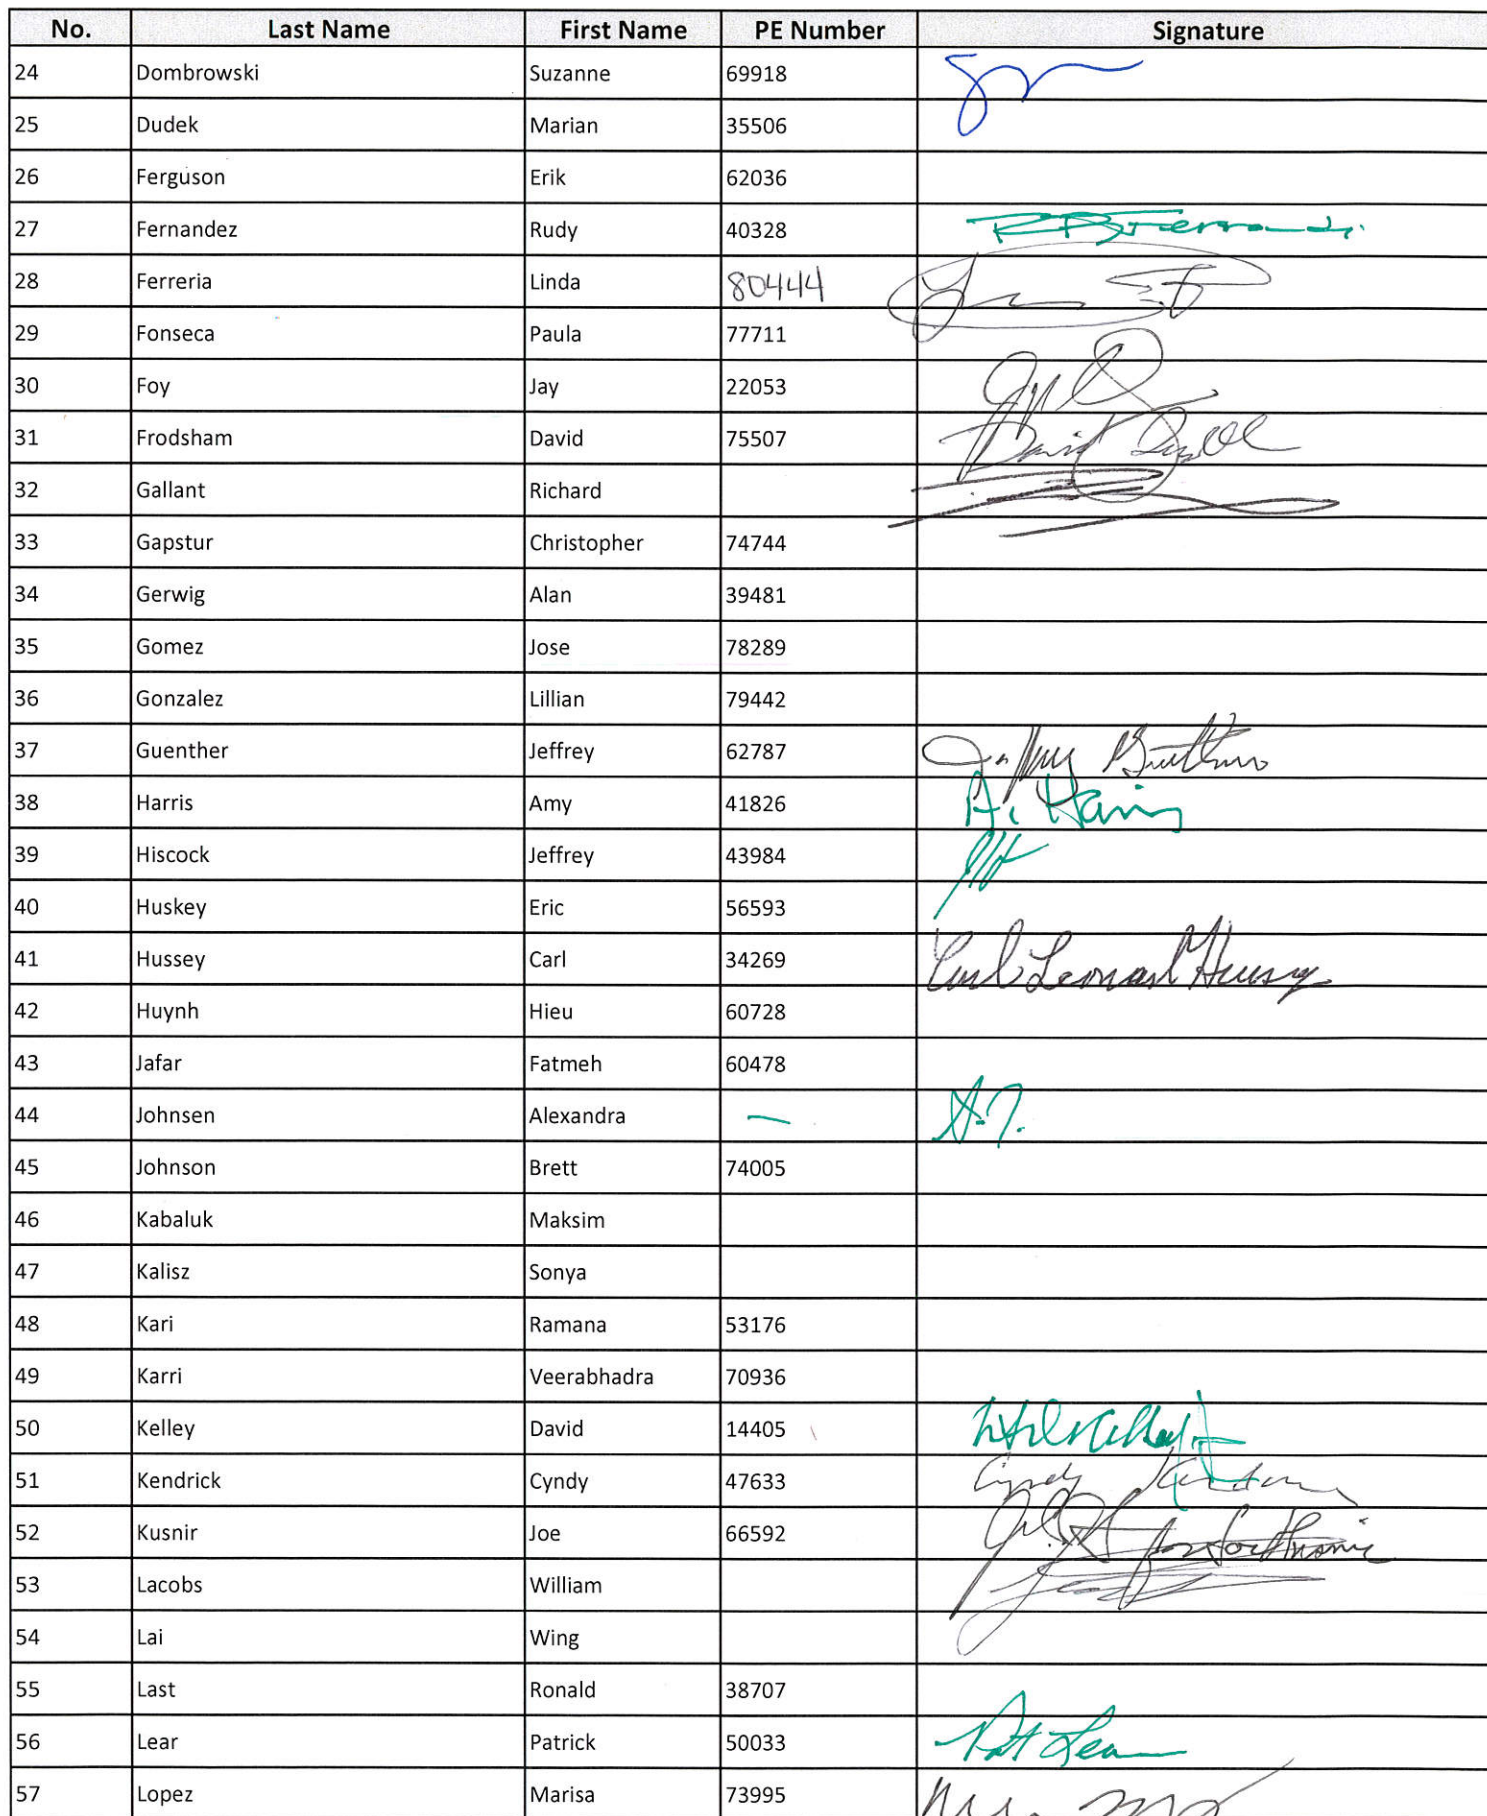 No. Last Name First Name PE Number Signature
24 Dombrowski Suzanne 69918
25 Dudek Marian 35506
26 Ferguson Erik 62036
27 Fernandez Rudy 40328
28 Ferreria Linda 80444
29 Fonseca Paula 77711
30 Foy Jay 22053
31 Frodsham David 75507 David
32 Gallant Richard
33 Gapstur Christopher 74744
34 Gerwig Alan 39481
35 Gomez Jose 78289
36 Gonzalez Lillian 79442
37 Guenther Jeffrey 62787 Jeffrey Guenther
38 Harris Amy 41826 A. Harris
39 Hiscock Jeffrey 43984
40 Huskey Eric 56593
41 Hussey Carl 34269 Carl Leonard Hussey
42 Huynh Hieu 60728
43 Jafar Fatmeh 60478
44 Johnsen Alexandra — A.J.
45 Johnson Brett 74005
46 Kabaluk Maksim
47 Kalisz Sonya
48 Kari Ramana 53176
49 Karri Veerabhadra 70936
50 Kelley David 14405
51 Kendrick Cyndy 47633 Cyndy Kendrick
52 Kusnir Joe 66592
53 Lacobs William
54 Lai Wing
55 Last Ronald 38707
56 Lear Patrick 50033 Pat Lear
57 Lopez Marisa 73995